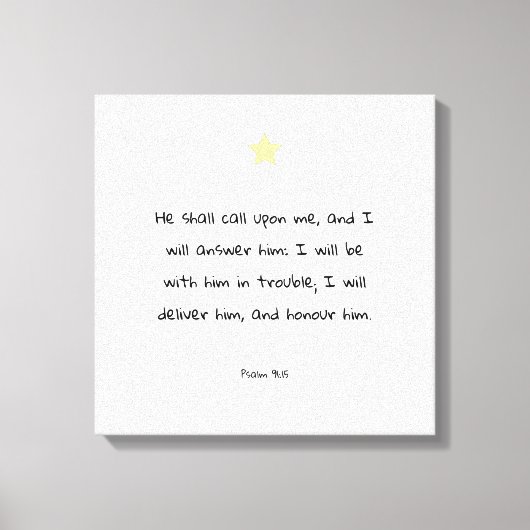 He shall call upon me, and I
will answer him: I will be
with him in trouble; I will
deliver him, and honour him.
Psalm 91:15